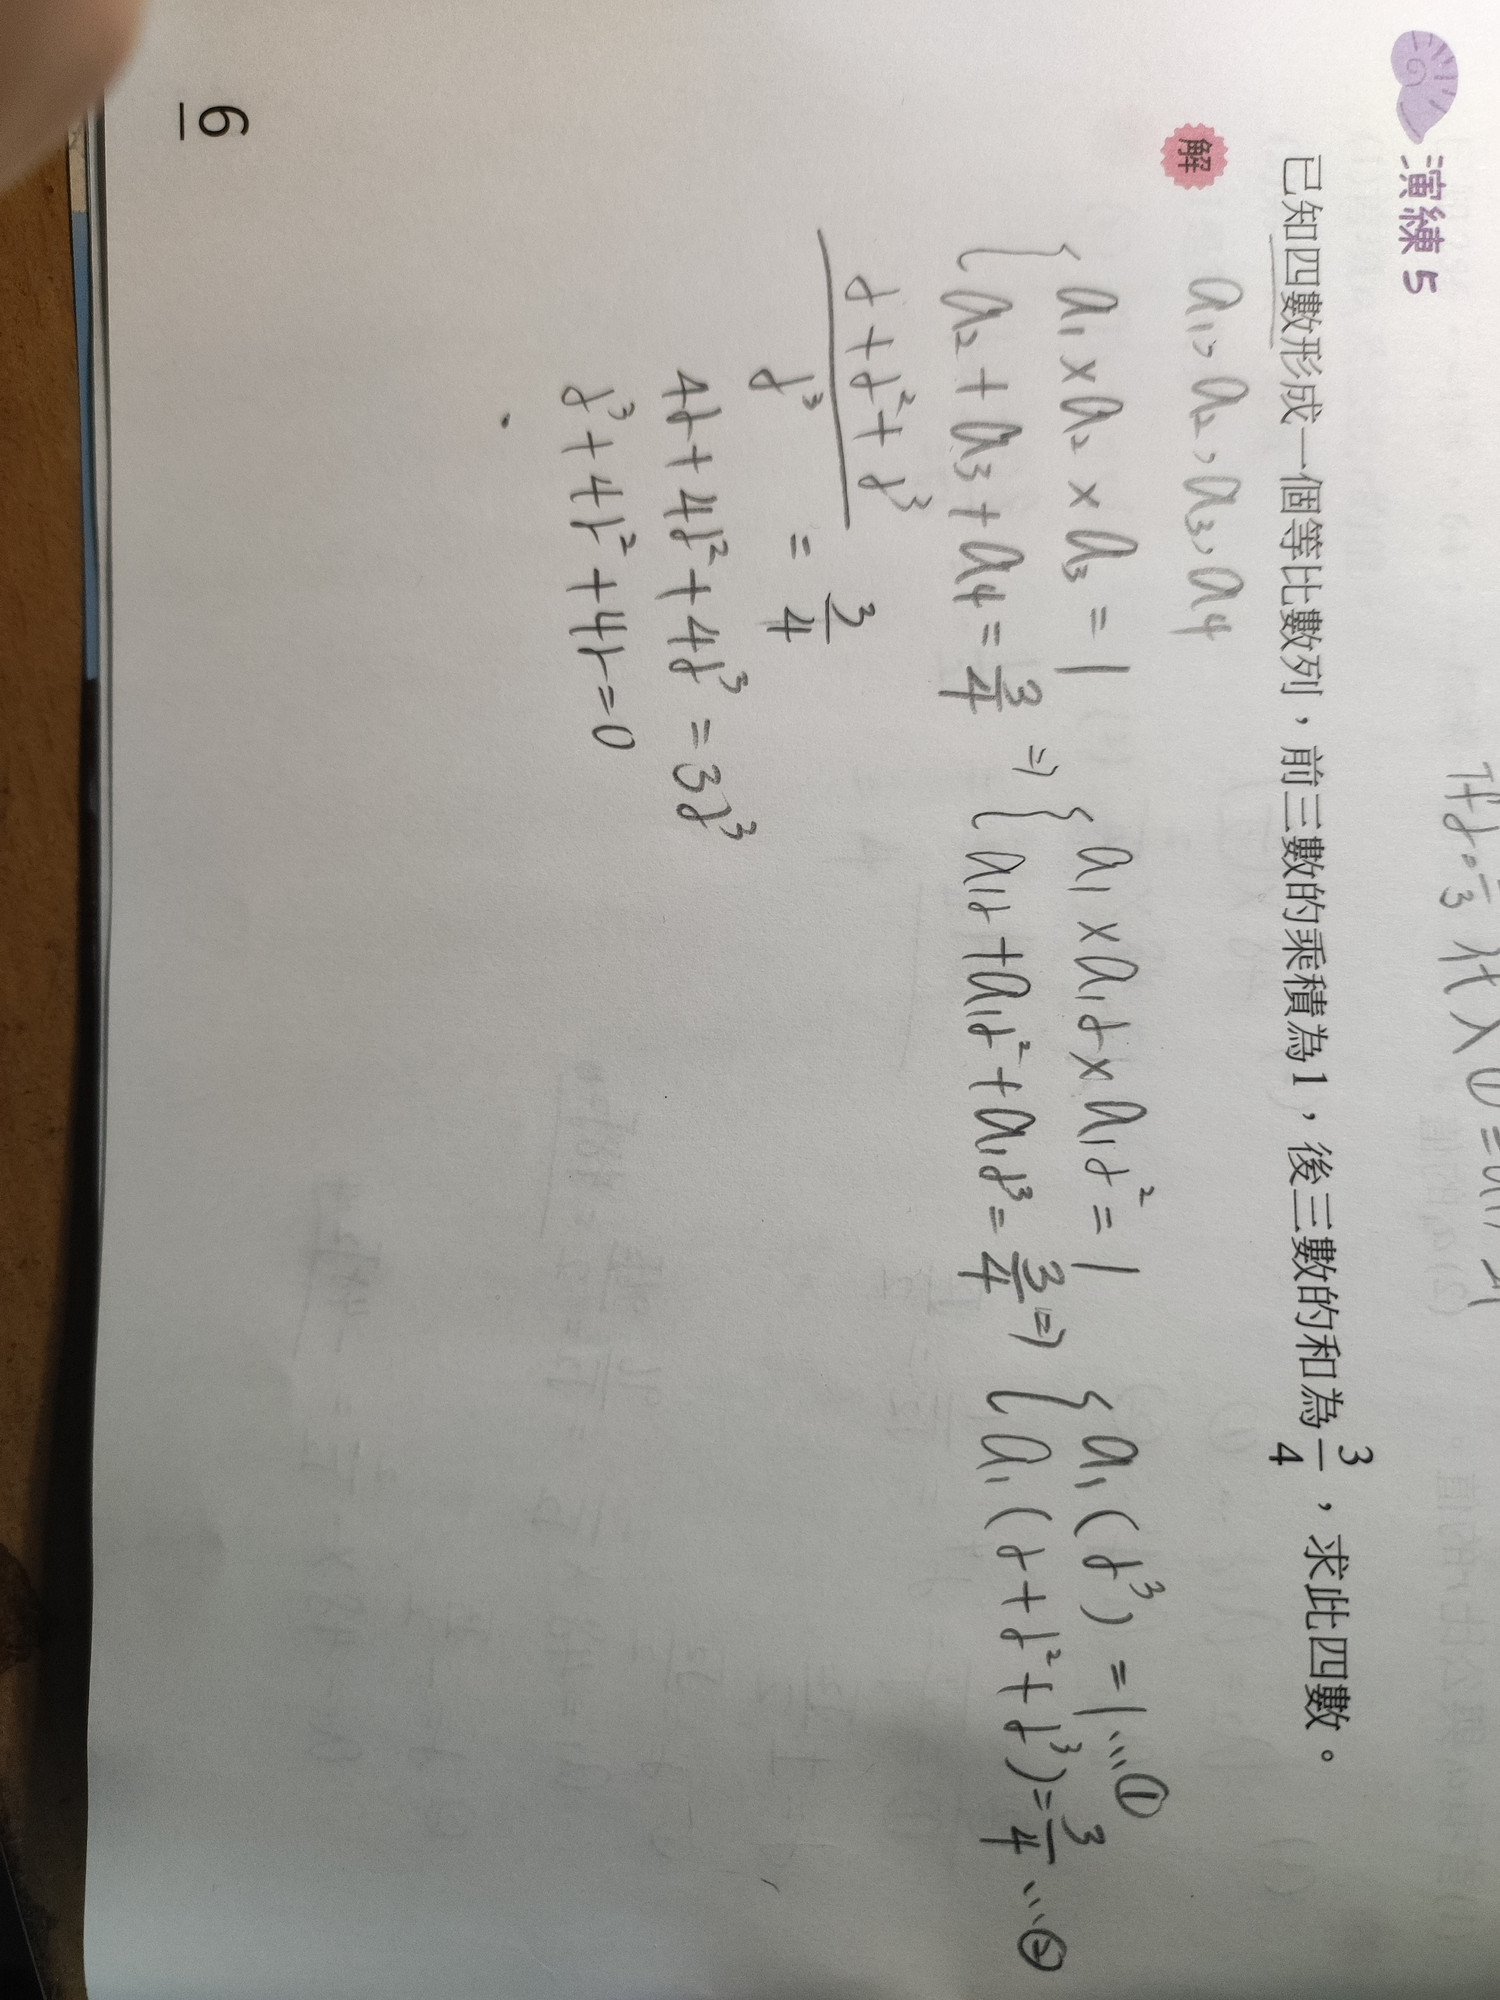 演練5
已知四數形成一個等比數列，前三數的乘積為1，後三數的和為3/4，求此四數。
解
a₁, a₂, a₃, a₄
{ a₁ × a₂ × a₃ = 1 ⇒ { a₁ × a₁r × a₁r² = 1 ⇒ { a₁(r³) = 1 …①
{ a₂ + a₃ + a₄ = 3/4 { a₁r + a₁r² + a₁r³ = 3/4 { a₁(r + r² + r³) = 3/4 …②
(r + r² + r³)/r³ = 3/4
4r + 4r² + 4r³ = 3r³
r³ + 4r² + 4r = 0
6